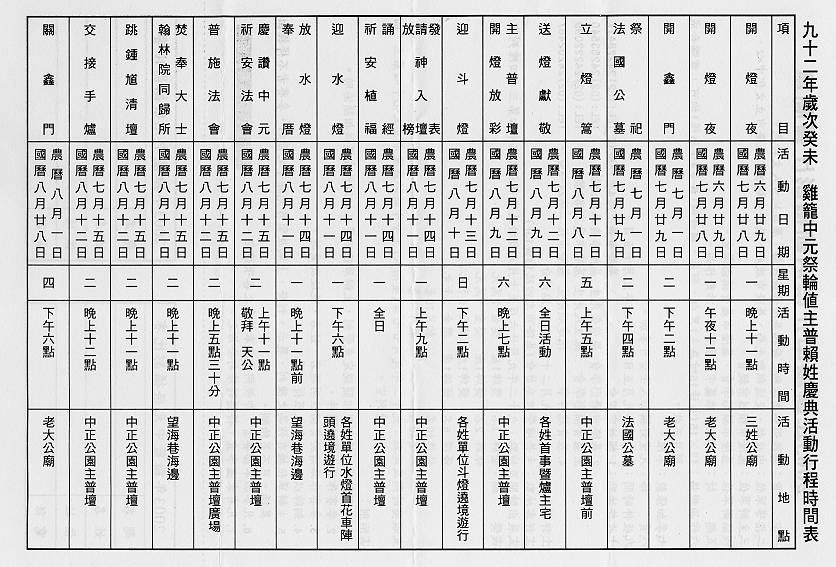 九十二年歲次癸未 雞籠中元祭輪值主普賴姓慶典活動行程時間表
項目 活動日期 星期 活動時間 活動地點
開燈夜
農曆六月廿九日
國曆七月廿八日
一
晚上十一點
三姓公廟
開燈夜
農曆六月廿九日
國曆七月廿八日
一
午夜十二點
老大公廟
開鑫門
農曆七月一日
國曆七月廿九日
二
下午二點
老大公廟
祭祀
法國公墓
農曆七月一日
國曆七月廿九日
二
下午四點
法國公墓
立燈篙
農曆七月十一日
國曆八月八日
五
上午五點
中正公園主普壇前
送燈獻敬
農曆七月十二日
國曆八月九日
六
全日活動
各姓首事暨爐主宅
主普壇
開燈放彩
農曆七月十二日
國曆八月九日
六
晚上七點
中正公園主普壇
迎斗燈
農曆七月十三日
國曆八月十日
日
下午二點
各姓單位斗燈遶境遊行
發表
請神入壇
放榜
農曆七月十四日
國曆八月十一日
一
上午九點
中正公園主普壇
誦經
祈安植福
農曆七月十四日
國曆八月十一日
一
全日
中正公園主普壇
迎水燈
農曆七月十四日
國曆八月十一日
一
下午六點
各姓單位水燈首花車陣
頭遶境遊行
放水燈
奉厝
農曆七月十四日
國曆八月十一日
一
晚上十一點前
望海巷海邊
慶讚中元
祈安法會
農曆七月十五日
國曆八月十二日
二
上午十一點
敬拜 天公
中正公園主普壇
普施法會
農曆七月十五日
國曆八月十二日
二
晚上五點三十分
中正公園主普壇廣場
焚奉大士
翰林院同歸所
農曆七月十五日
國曆八月十二日
二
晚上十一點
望海巷海邊
跳鍾馗清壇
農曆七月十五日
國曆八月十二日
二
晚上十一點
中正公園主普壇
交接手爐
農曆七月十五日
國曆八月十二日
二
晚上十二點
中正公園主普壇
關鑫門
農曆八月一日
國曆八月廿八日
四
下午六點
老大公廟